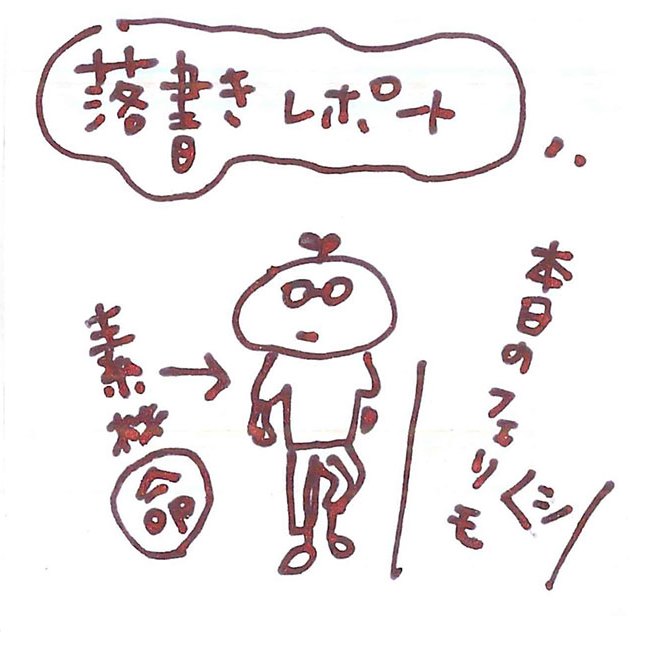 落書きレポート
本日のフェリシモ
素材
命